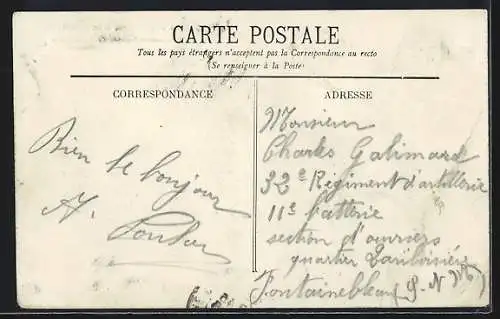 CARTE POSTALE
Tous les pays étrangers n'acceptent pas la Correspondance au recto
(Se renseigner à la Poste)
CORRESPONDANCE
ADRESSE
Bien le bonjour
A.
Monsieur
Charles Galimard
32e Régiment d'artillerie
11e batterie
section d'ouvriers
quartier Lariboisière
Fontainebleau (S-N